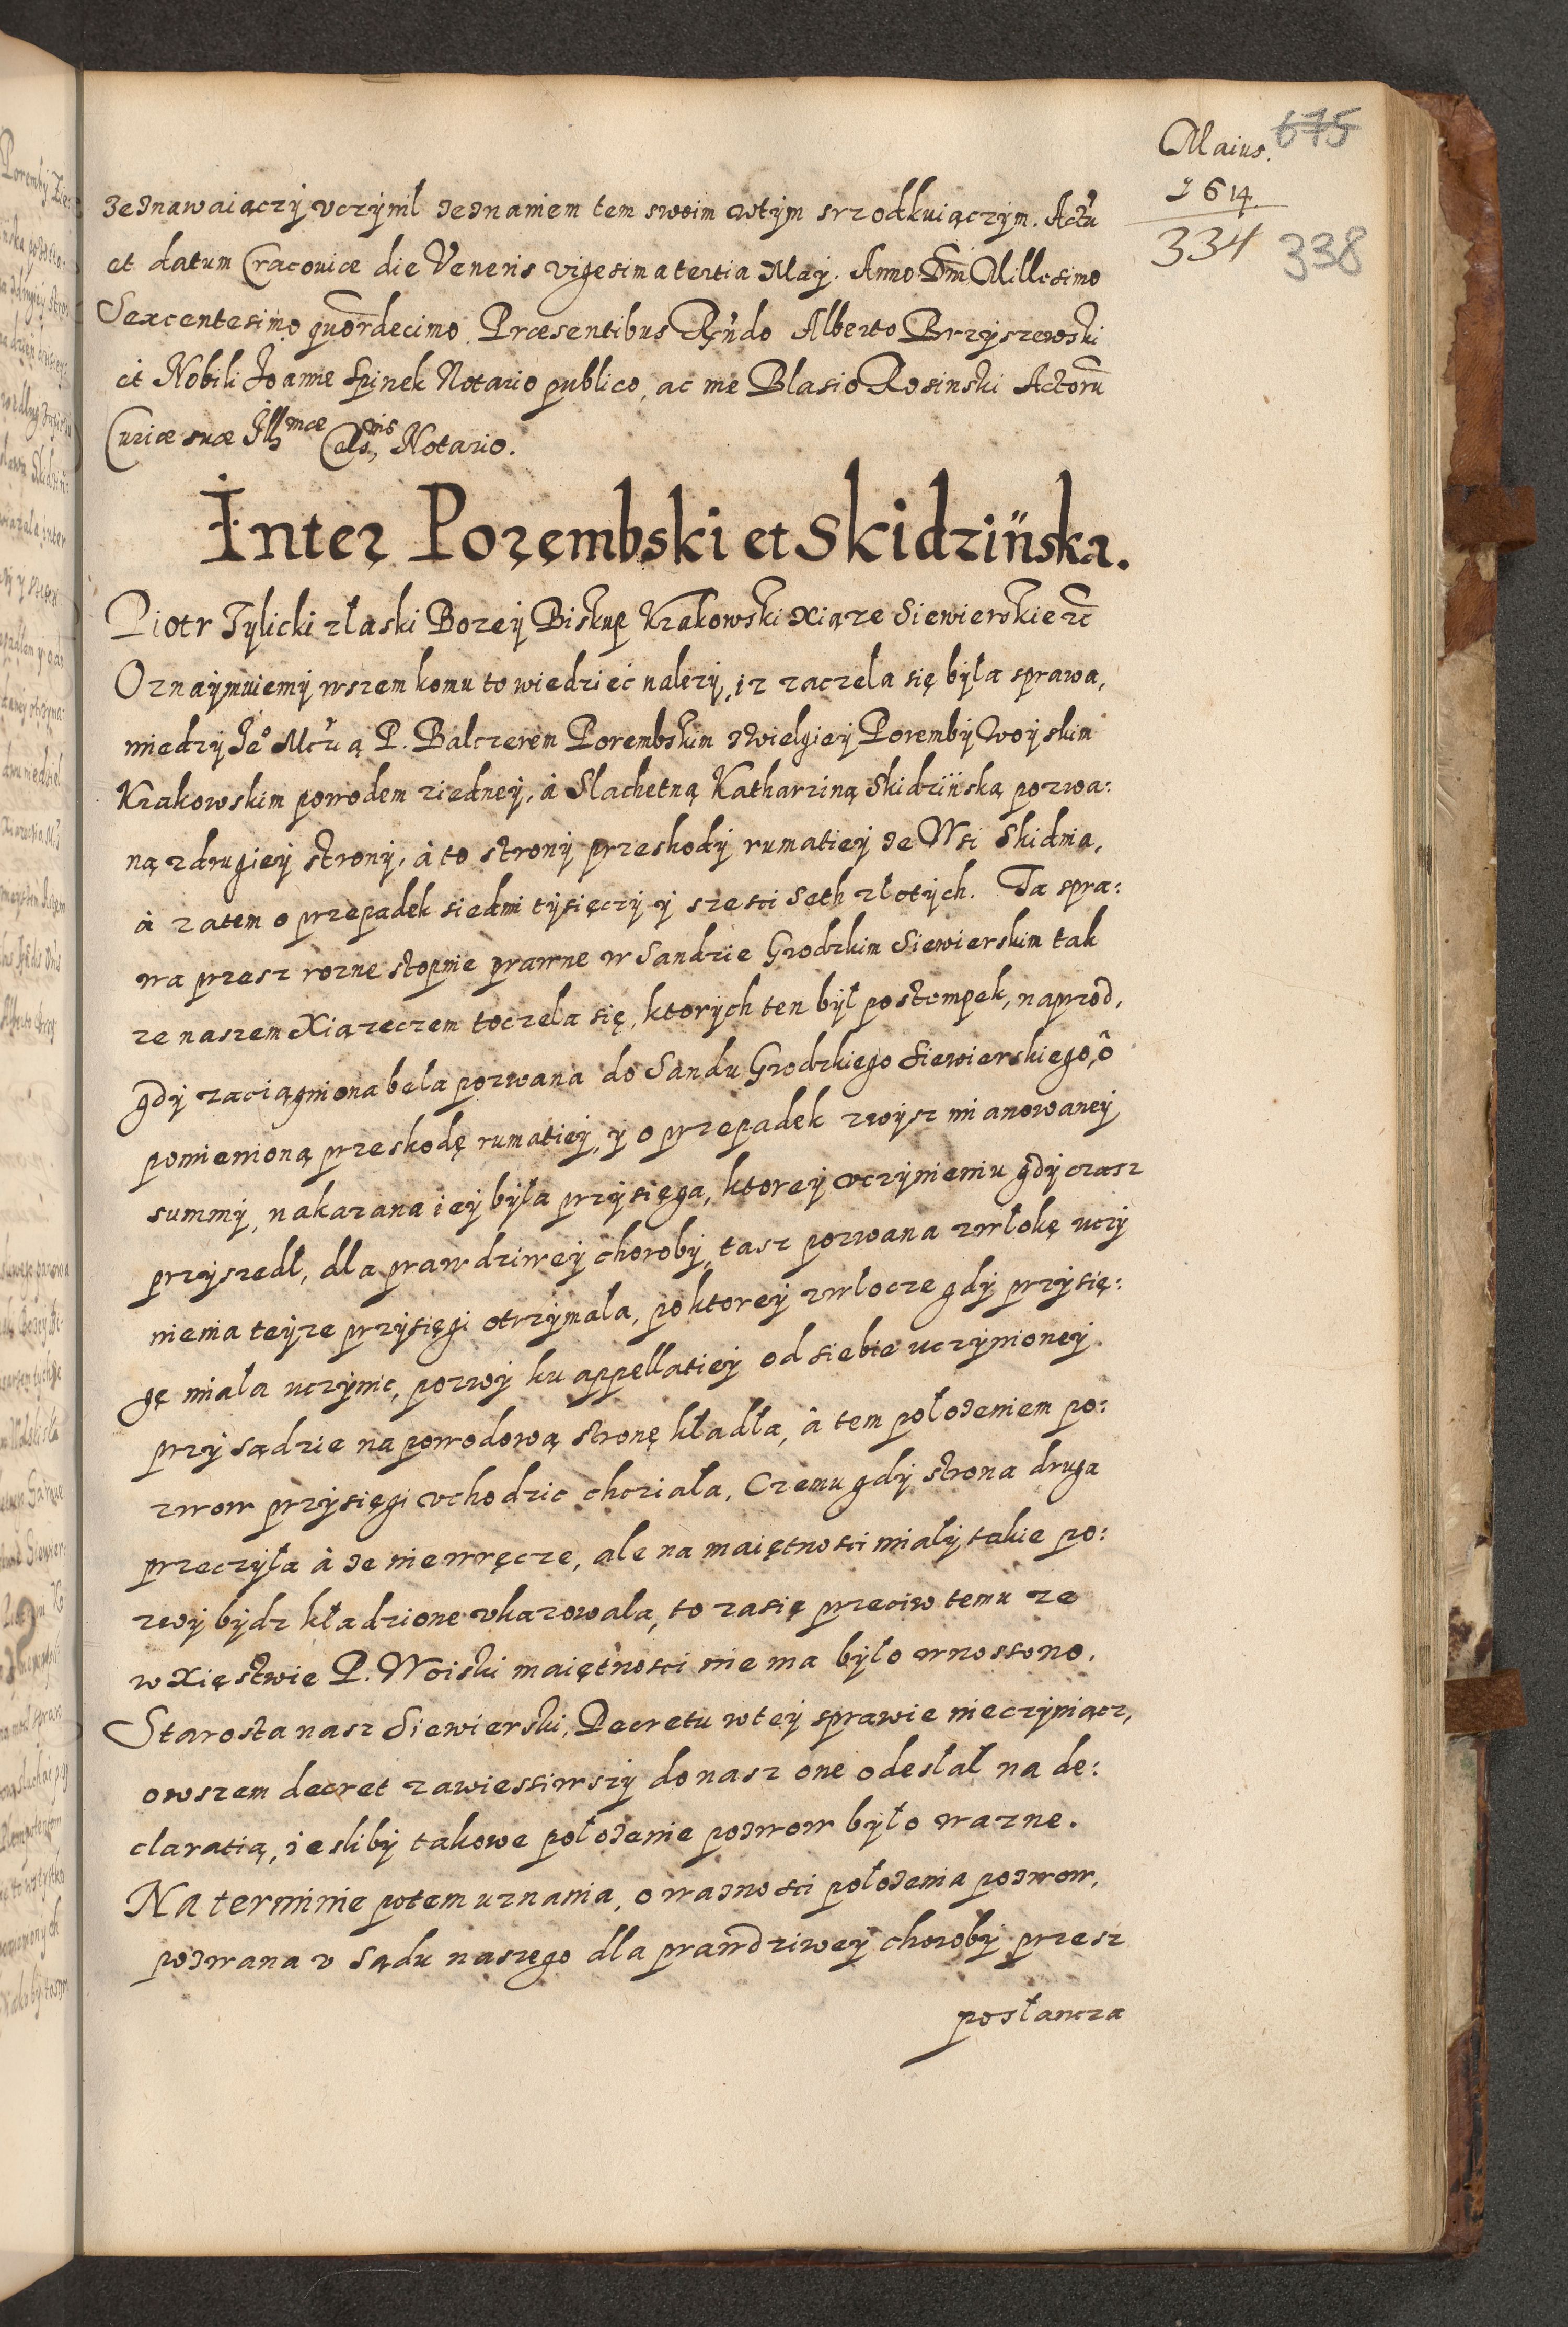 Maius. 675
1614
334 338
zednawaiączy vczynił zednaniem tem swoim wtym srzodkuiączym. Actũ
et datum Cracoviæ die Veneris vigesima tertia Maij. Anno Dm̃ Millesimo
Sexcentesimo quor̃decimo. Præsentibus Rņ̃do Alberto Brzyszewski
et Nobili Joanne Spinek Notario publico, ac me Blasio Rosinski Actorũ
Curiæ suæ Illmæ Cels,nis Notario.
Inter Porembski et Skidzińska.
Piotr Tylicki złaski Bozey Biskup Krakowski Xiąze Siewierskie zc̃
Oznaymuiemy wszem komu to wiedzieć nalezy, iz zaczeła się była sprawa,
miedzy Je͠o Mczią P. Balczerem Porembskim zWielgiey Poremby Woyskim
Krakowskim powodem ziedney, à Slachetną Katharziną Skidzińską pozwa:
ną zdrugiey strony, à to strony przeskody rumatiey ze Wsi Skidnia,
à zatem o przepadek siedmi tysięczy y szesci seth złotych. Ta spra:
wa przesz rozne stopnie prawne w Sandzie Grodzkim Siewierskim tak
ze naszem Xiązeczem toczela się, ktorych ten był postempek, naprzod,
gdy zaciągniona bela pozwana do Sandu Grodzkiego Siewierskiego, ô
pomienioną przeskodę rumatiey, y o przepadek zwysz mianowaney
summy, nakazana iey była przysięga, ktorey vczynieniu gdy czasz
przyszedł, dla prawdziwey choroby, tasz pozwana zwłokę uczy
nienia teyze przysięgi otrzymała, po ktorey zwłocze gdy przysię:
gę miała uczynic, pozwy ku appellatiey od siebie uczynioney
przy sądzie na powodową stronę kładła, à tem położeniem po:
zwow przysięgi vchodzic chciała, Czemu gdy strona druga
przeczyła à ze nie wręcze, ale na maiętnosci miały takie po:
zwy bydz kładzione vkazowała, to zasię przeciw temu ze
w Xięstwie P. Woiski maiętnosci nie ma było wnossono.
Starosta nasz Siewierski, Decretu wtey sprawie nie czyniącz,
owszem decret zawiessiwszy do nasz one odesłał na de:
claratią, iesliby takowe położenie pozwow było wazne.
Na terminie potem uznania, o waznosci położenia pozwow,
pozwana v sądu naszęgo dla prawdziwey choroby przesz
posłancza